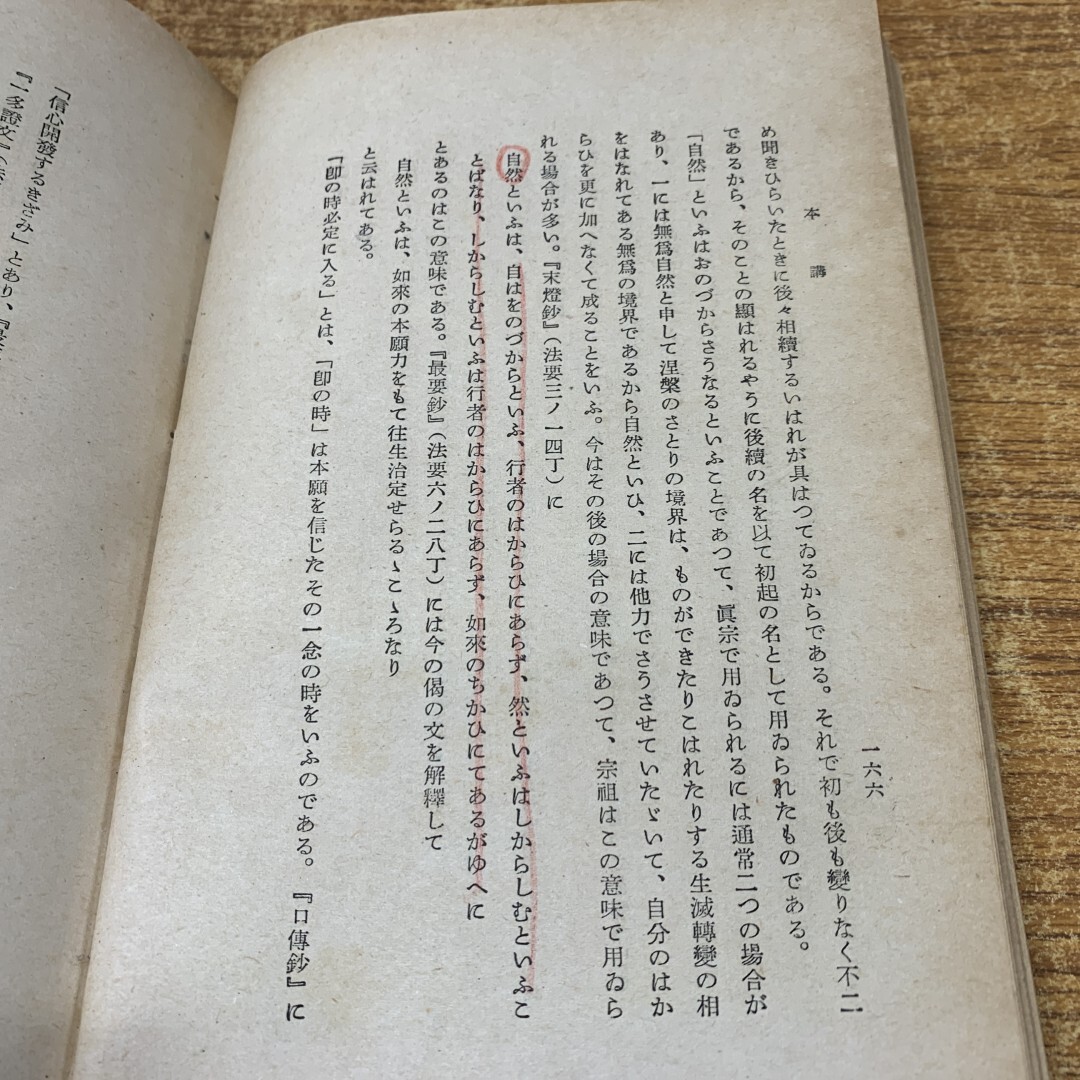 本講
一六六
め聞きひらいたときに後々相續するいはれが具はつてゐるからである。それで初も後も變りなく不二
であるから、そのことの顯はれるやうに後續の名を以て初起の名として用ゐられたものである。
「自然」といふはおのづからさうなるといふことであつて、眞宗で用ゐられるには通常二つの場合が
あり、一には無爲自然と申して涅槃のさとりの境界は、ものができたりこはれたりする生滅轉變の相
をはなれてある無爲の境界であるから自然といひ、二には他力でさうさせていたゞいて、自分のはか
らひを更に加へなくて成ることをいふ。今はその後の場合の意味であつて、宗祖はこの意味で用ゐら
れる場合が多い。『末燈鈔』(法要三ノ一四丁)に
自然といふは、自はをのづからといふ、行者のはからひにあらず、然といふはしからしむといふこ
とばなり、しからしむといふは行者のはからひにあらず、如來のちかひにてあるがゆへに
とあるのはこの意味である。『最要鈔』(法要六ノ二八丁)には今の偈の文を解釋して
自然といふは、如來の本願力をもて往生治定せらるゝこゝろなり
と云はれてある。
「卽の時必定に入る」とは、「卽の時」は本願を信じたその一念の時をいふのである。『口傳鈔』に
「信心開發するきざみ」とあり、
『一多證文』